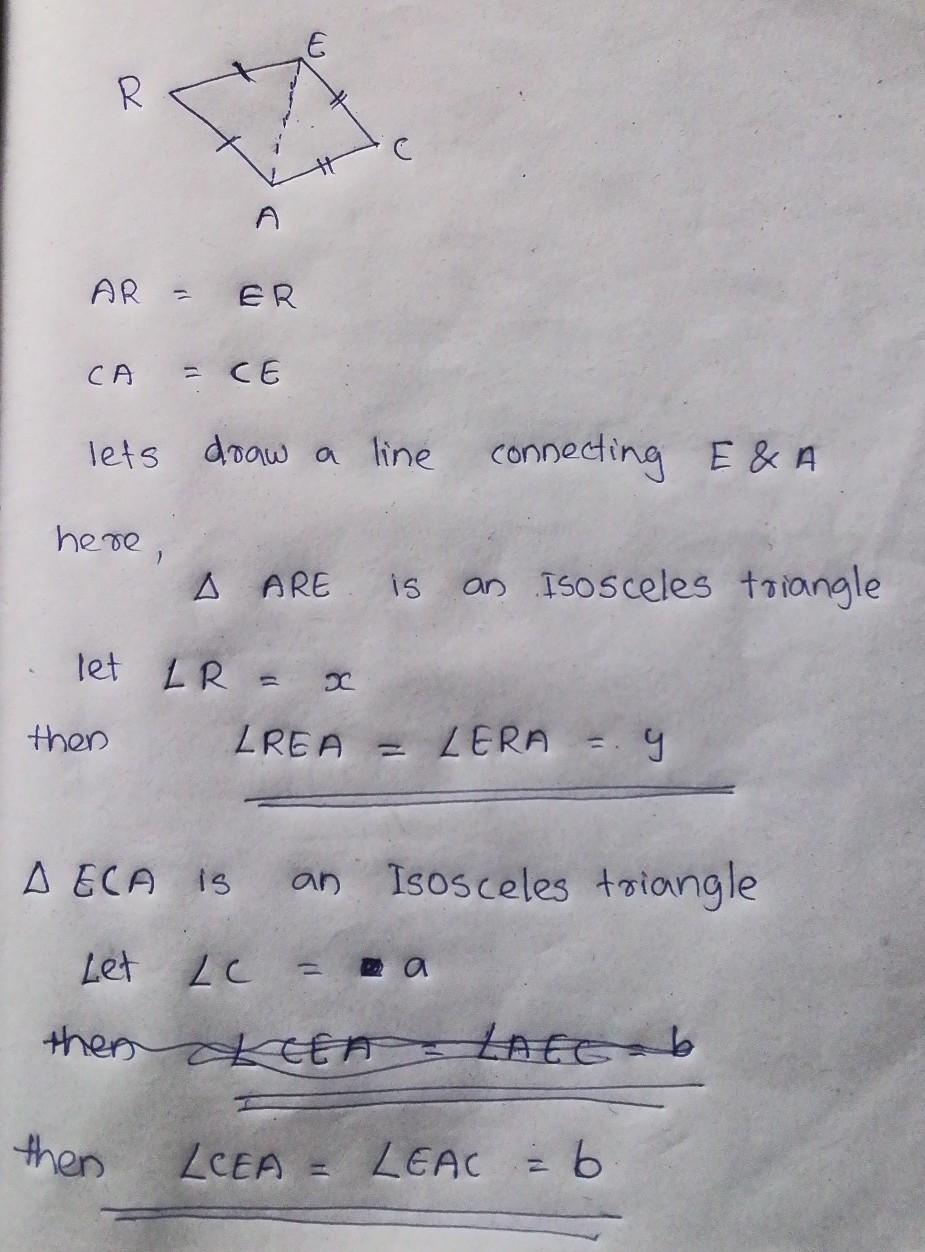 E
R
C
A
AR = ER
CA = CE
lets draw a line connecting E & A
here,
Δ ARE is an Isosceles triangle
let ∠R = x
then ∠REA = ∠ERA = y
Δ ECA is an Isosceles triangle
Let ∠C = a
then ∠CEA = ∠AEC = b
then ∠CEA = ∠EAC = b